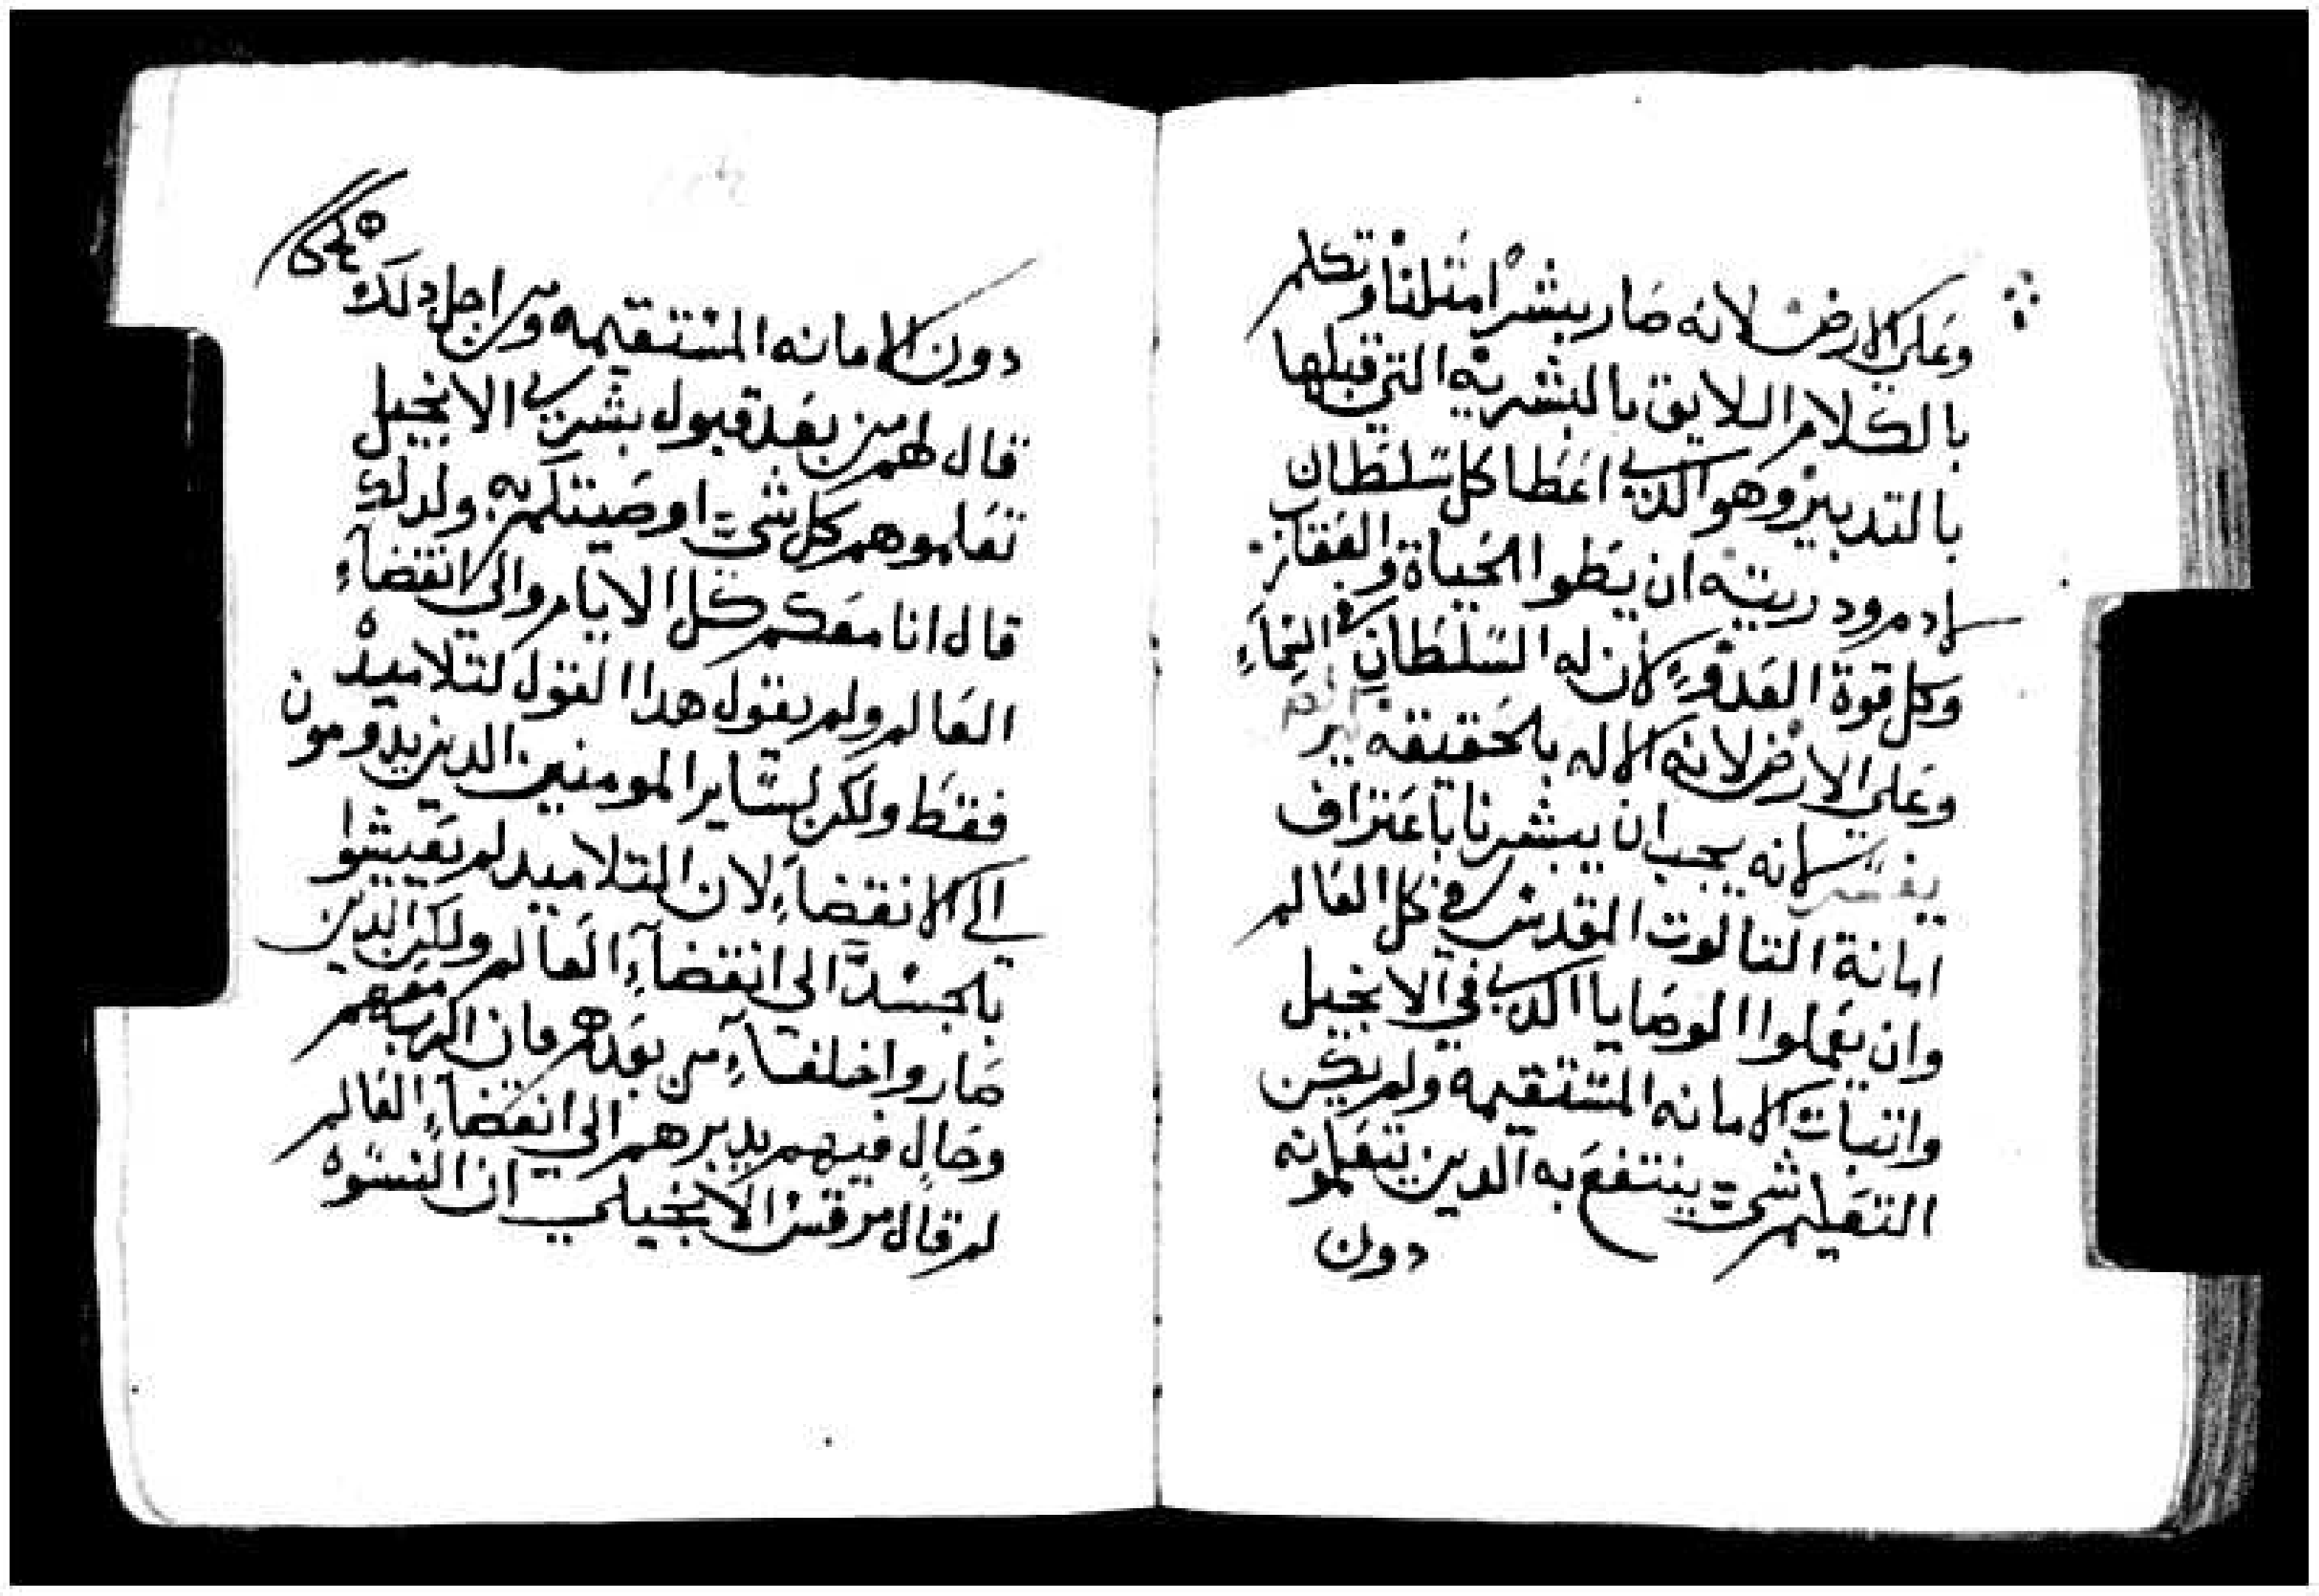 وعلي الارض لانه صار بشرا متلنا وتكلم
بالكلام اللايق بالبشريه التي قبلها
بالتدبير وهو الدي اعطا كل سلطان
لادم ودريته ان يطوا الحياة والعقارب
وكل قوة العدو لان له السلطان في السماء
وعلي الارض لانه الاله بالحقيقه
يفسر لانه يجب ان يبشرنا باعتراف
امانة التالوت المقدس في كل العالم
وان يعملوا الوصايا الدي في الانجيل
واتبات الامانه المستقيمه ولم يكن
التعليم شي ينتفع به الدين يتعلمونه
دون
دون الامانه المستقيمه ومن اجل دلك
قال لهم من بعد قبول بشري الانجيل
تعلموهم كل شي اوصيتكم به ولدلك
قال انا معكم كل الايام والي انقضاء
العالم ولم يقول هدا القول لتلاميده
فقط ولكن لساير المومنين الدين يدومون
الي الانقضاء لان التلاميد لم يعيشوا
بالجسد الي انقضاء العالم ولكن الدين
صاروا خلفاء من بعدهم فان الرب معهم
وحال فيهم يدبرهم الي انقضاء العالم
لم قال مرقس الانجيلي ان النسوه